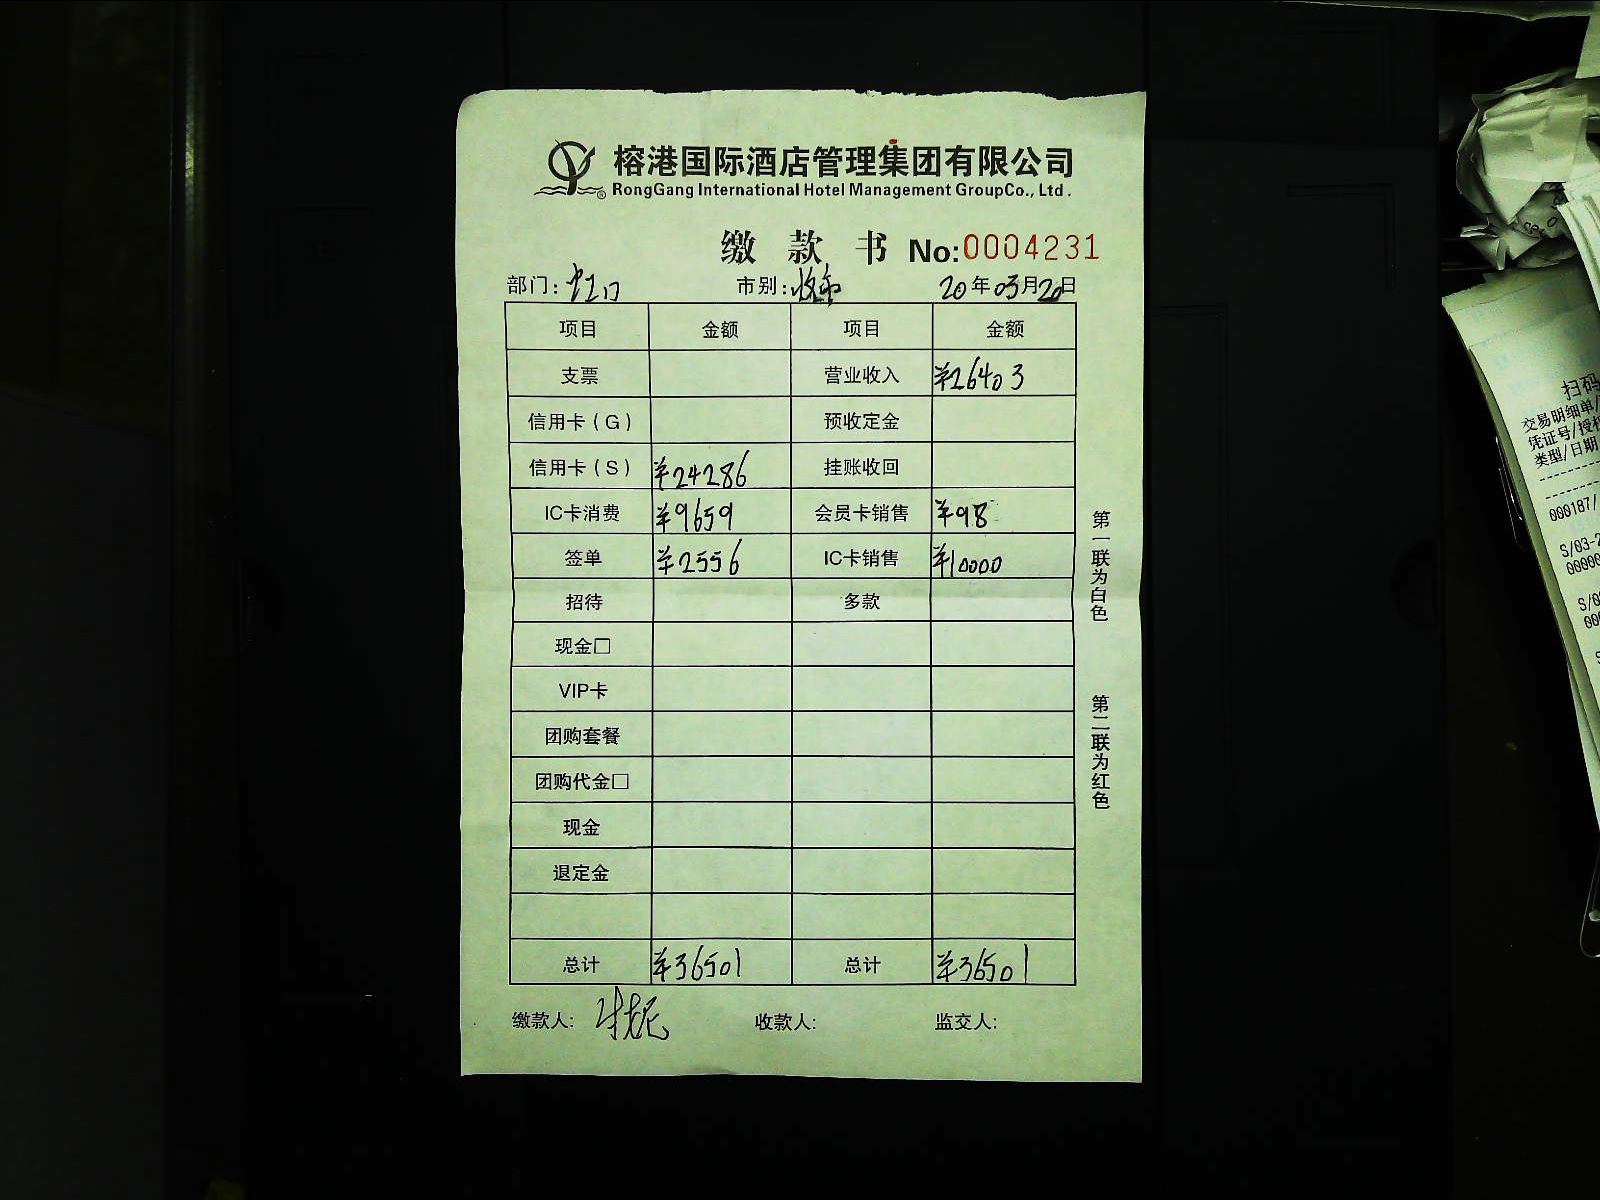 榕港国际酒店管理集团有限公司
RongGang International Hotel Management GroupCo., Ltd.
缴款书 No:0004231
部门: 虹口 市别: 收市 20年03月20日
项目 金额 项目 金额
支票 营业收入 ¥26403
信用卡(G) 预收定金
信用卡(S) ¥24286 挂账收回
IC卡消费 ¥9659 会员卡销售 ¥98
签单 ¥2556 IC卡销售 ¥10000
招待 多款
现金□
VIP卡
团购套餐
团购代金□
现金
退定金
总计 ¥36501 总计 ¥36501
缴款人: 收款人: 监交人:
第一联为白色
第二联为红色
扫码
交易明细单/
凭证号/授权
类型/日期
000187/